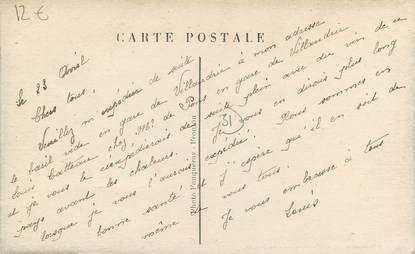 12 €
CARTE POSTALE
Le 23 Avril
Chers tous,
Veuillez m'expédier de suite
le baril vide en gare de Villandrie à mon adresse
Louis en gare de Villandrie
et je vous le réexpédierai de suite plein avec du vin de ce
pays avant les chaleurs. Je vous en dirais plus long
lorsque je vous l'aurais expédié. Nous sommes en
bonne santé et j'espère qu'il en soit de
même de vous tous.
Je vous embrasse à tous
Louis
31
Photo Fouquerny - Fronton